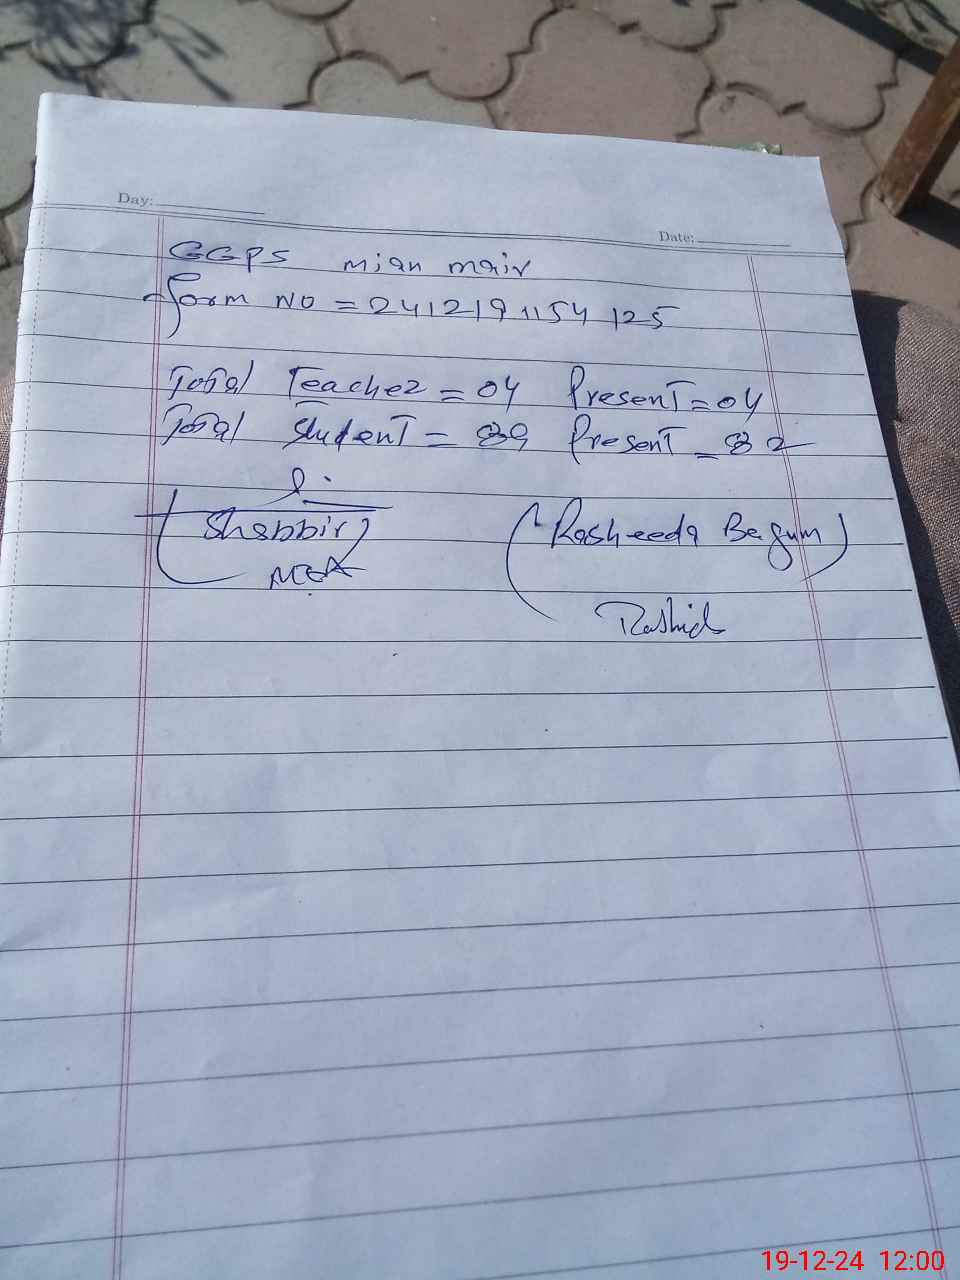 Day:
Date:
GGPS mian mair
Form NO = 241219 1154 125
Total Teacher = 04 Present = 04
Total Student = 89 Present = 82
(Shabbir)
MEA
(Rasheeda Begum)
Rashid
19-12-24 12:00